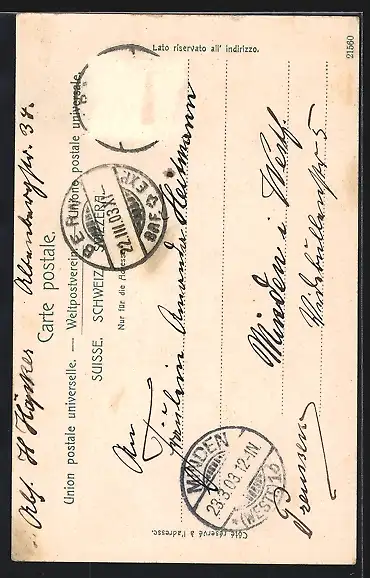 Carte postale.
Union postale universelle. — Weltpostverein. — Unione postale universale.
SUISSE. SCHWEIZ. SVIZZERA.
Nur für die Adresse.
Lato riservato all' indirizzo.
Côté réservé à l'adresse.
21560
BERN
22.III.03.X
BRF. EXP.
Abs. H Höpker Altenbergstr. 34.
An
Fräulein Amanda Heitmann
Minden i Westf.
5
Preussen
MINDEN
23.3.03.12-1N
(WESTF) 1b